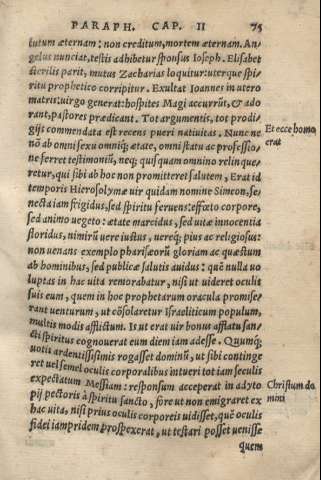 PARAPH. CAP. II 75
lutum æternam: non creditum, mortem æternam. An-
gelus nunciat, testis adhibetur sponsus Ioseph. Elisabet
sterilis parit, mutus Zacharias loquitur: uterque spi-
ritu prophetico corripitur. Exultat Ioannes in utero
matris: uirgo generat: hospites Magi accurrūt, & ado
rant, pastores prædicant. Tot argumentis, tot prodi-
gijs commendata est recens pueri natiuitas. Nunc ne
nō ab omni sexu omniq; ætate, omni statu ac professio
ne ferret testimoniū, neq; quisquam omnino relinque
retur, qui sibi ab hoc non promitteret salutem, Erat id
temporis Hierosolymæ uir quidam nomine Simeon, se-
necta iam frigidus, sed spiritu feruens: effœto corpore,
sed animo uegeto: ætate marcidus, sed uitæ innocentia
floridus, nimirū uere iustus, uereq; pius ac religiosus:
non uenans exemplo pharisæorū gloriam ac quæstum
ab hominibus, sed publicæ salutis auidus: quē nulla uo
luptas in hac uita remorabatur, nisi ut uideret oculis
suis eum, quem in hoc prophetarum oracula promise-
rant uenturum, ut cōsolaretur Israeliticum populum,
multis modis afflictum. Is ut erat uir bonus afflatu san-
cti spiritus cognouerat eum diem iam adesse. Quumq;
uotis ardentissimis rogasset dominū, ut sibi continge
ret uel semel oculis corporalibus intueri tot iam seculis
expectatum Messiam: responsum acceperat in adyto
pij pectoris à spiritu sancto, fore ut non emigraret ex
hac uita, nisi prius oculis corporeis uidisset, quē oculis
fidei iampridem prospexerat, ut testari posset uenisse
quem
Et ecce homo
erat
Christum do
mini